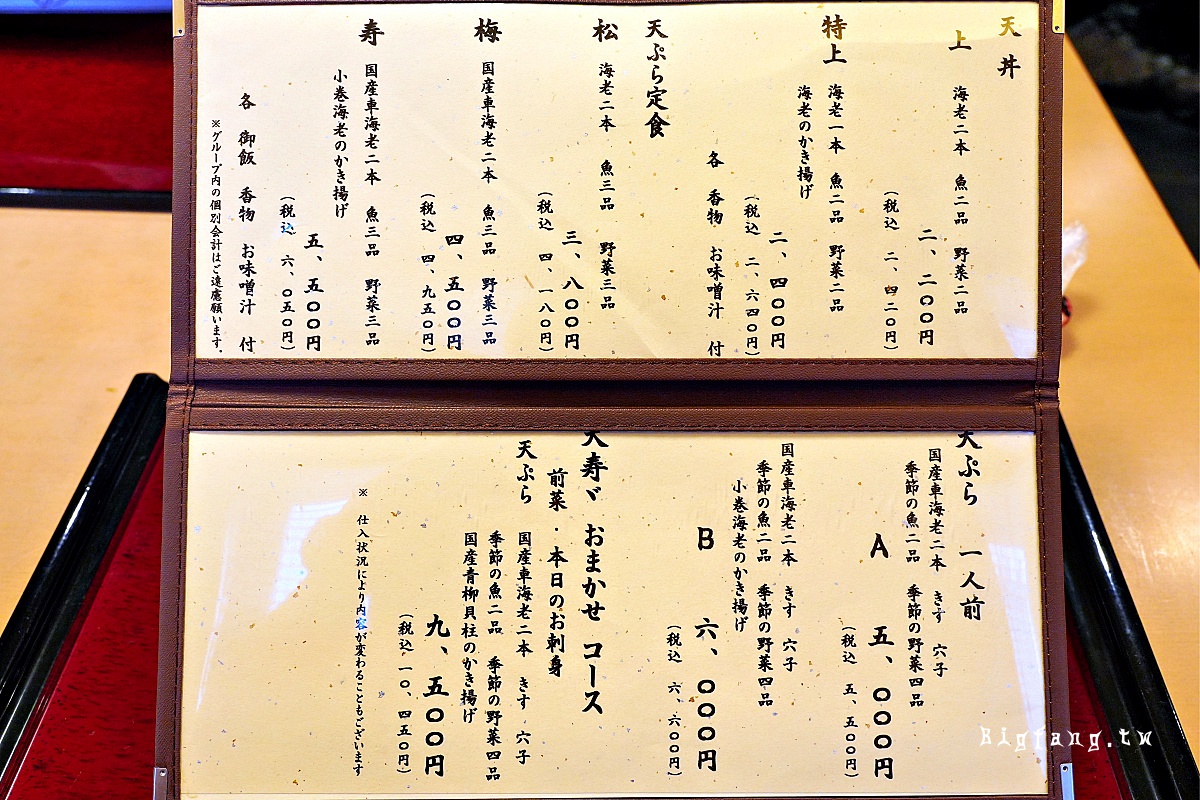 天丼
上 海老二本 魚二品 野菜二品
二、二〇〇円
(税込 二、四二〇円)
特上 海老一本 魚二品 野菜二品
海老のかき揚げ
二、四〇〇円
(税込 二、六四〇円)
各 香物 お味噌汁 付
天ぷら定食
松 海老二本 魚三品 野菜三品
三、八〇〇円
(税込 四、一八〇円)
梅 国産車海老二本 魚三品 野菜三品
四、五〇〇円
(税込 四、九五〇円)
寿 国産車海老二本 魚三品 野菜三品
小巻海老のかき揚げ
五、五〇〇円
(税込 六、〇五〇円)
各 御飯 香物 お味噌汁 付
※グループ内の個別会計はご遠慮願います。
天ぷら 一人前
国産車海老二本 きす 穴子
季節の魚二品 季節の野菜四品
A 五、〇〇〇円
(税込 五、五〇〇円)
国産車海老二本 きす 穴子
季節の魚二品 季節の野菜四品
小巻海老のかき揚げ
B 六、〇〇〇円
(税込 六、六〇〇円)
天寿ヾ おまかせ コース
前菜・本日のお刺身
天ぷら 国産車海老二本 きす 穴子
季節の魚二品 季節の野菜四品
国産青柳貝柱のかき揚げ
九、五〇〇円
(税込 一〇、四五〇円)
※ 仕入状況により内容が変わることもございます
Bigfang.tw